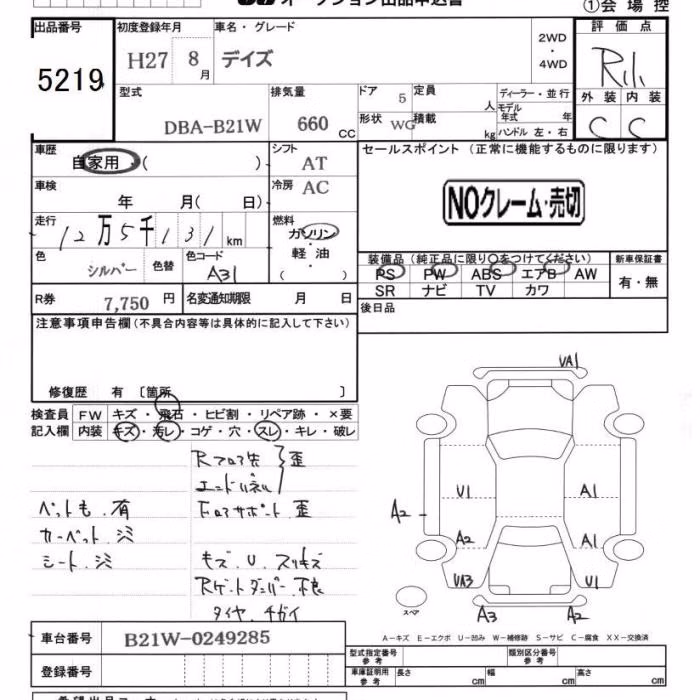 ①会場控
出品番号
5219
初度登録年月
H27 8月
車名・グレード
デイズ
2WD・4WD
評価点
外装 内装
C C
型式
DBA-B21W
排気量
660 cc
ドア 5
定員 人
形状 WG
積載 kg
ディーラー・並行
モデル年式 年
ハンドル 左・右
車歴
自家用・( )
シフト
AT
車検
年 月( 日)
冷房
AC
走行
12万5千131km
燃料
ガソリン・軽油・( )
色
シルバー
色替
色コード
A31
R券
7,750 円
名変通知期限 月 日
セールスポイント (正常に機能するものに限ります)
NOクレーム・売切
装備品 (純正品に限り○をつけてください)
PS PW ABS エアB AW
SR ナビ TV カワ
新車保証書
有・無
後日品
注意事項申告欄(不具合内容等は具体的に記入して下さい)
修復歴 有 〔箇所 〕
検査員記入欄
FW キズ・飛石・ヒビ割・リペア跡・×要
内装 キズ・汚レ・コゲ・穴・スレ・キレ・破レ
Rフロア先 歪
エンドパネル
Fロアサポート 歪
ペットも 有
カーペット.シミ
シート.シミ
キズ.U.スリキズ
Rゲートダンパー 不良
タイヤ.チガイ
VA1
U1
A1
A2
A2
A1
VA3
U1
スペア
A3
A2
A-キズ E-エクボ U-凹み W-補修跡 S-サビ C-腐食 XX-交換済
車台番号
B21W-0249285
登録番号
型式指定番号 参考
類別区分番号 参考
車庫証明用 参考 長さ cm 幅 cm 高さ cm